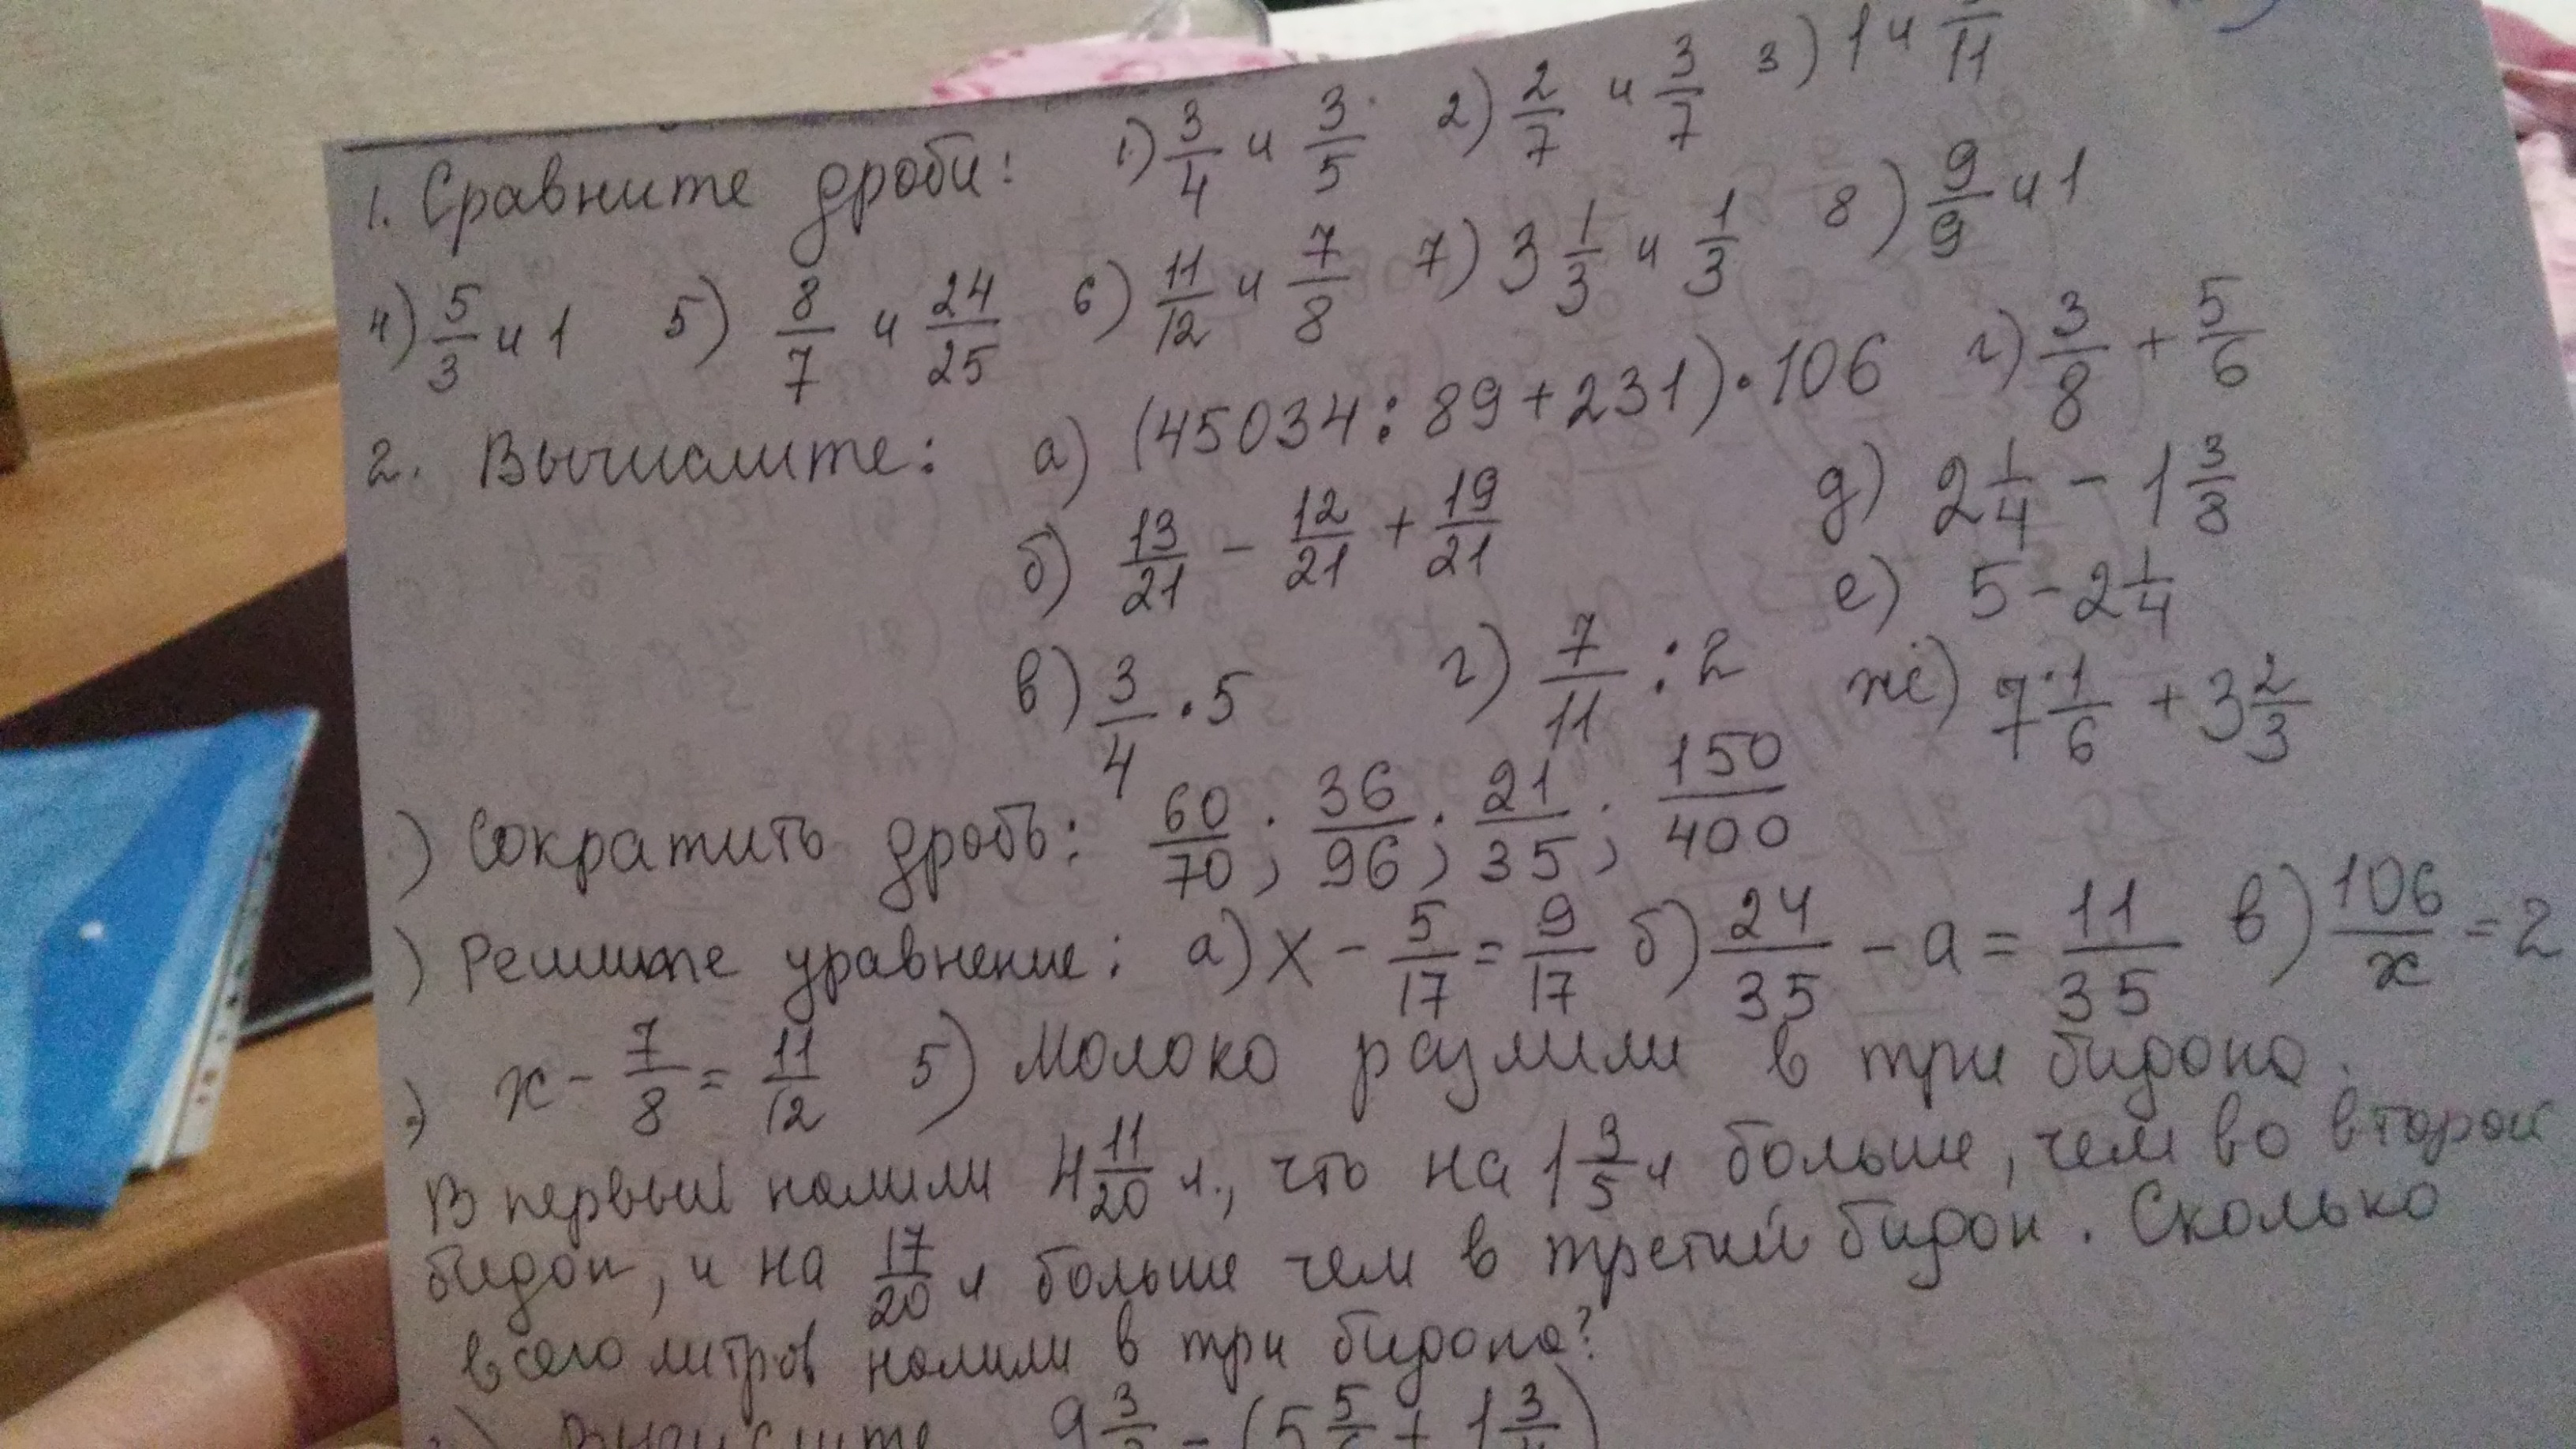 1. Сравните дроби: 1) 3/4 и 3/5 2) 2/7 и 3/7 3) 1 и /11
4) 5/3 и 1 5) 8/7 и 24/25 6) 11/12 и 7/8 7) 3 1/3 и 1/3 8) 9/9 и 1
2. Вычислите: а) (45034 : 89 + 231) · 106 г) 3/8 + 5/6
б) 13/21 - 12/21 + 19/21 д) 2 1/4 - 1 3/8
е) 5 - 2 1/4
в) 3/4 · 5 г) 7/11 : 2 ж) 7 1/6 + 3 2/3
) Сократить дробь: 60/70; 36/96; 21/35; 150/400
) Решите уравнение: а) x - 5/17 = 9/17 б) 24/35 - a = 11/35 в) 106/x = 2
) x - 7/8 = 11/12 5) Молоко разлили в три бидона.
В первый налили 4 11/20 л., что на 1 3/5 л больше, чем во второй
бидон, и на 17/20 л больше чем в третий бидон. Сколько
всего литров налили в три бидона?
) Вычислите 9 3/ - (5 5/ + 1 3/ )